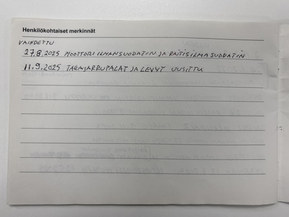 Henkilökohtaiset merkinnät
VAIHDETTU
27.8.2025 MOOTTORI ILMANSUODATIN JA RAITISILMASUODATIN
11.9.2025 JARRUPALAT JA LEVYT UUSITTU